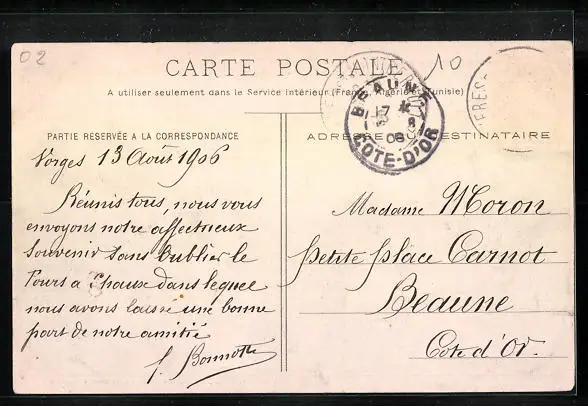 02
10
CARTE POSTALE
A utiliser seulement dans le Service Intérieur (France, Algérie et Tunisie)
BEAUNE
17
8
06
COTE-D'OR
PARTIE RÉSERVÉE A LA CORRESPONDANCE
ADRESSE DU DESTINATAIRE
Vorges 13 Août 1906
Réunis tous, nous vous
envoyons notre affectueux
souvenir sans oublier le
Fours a Chaux dans lequel
nous avons laissé une bonne
part de notre amitié
Madame Moron
Petite place Carnot
Beaune
Cote d'Or.